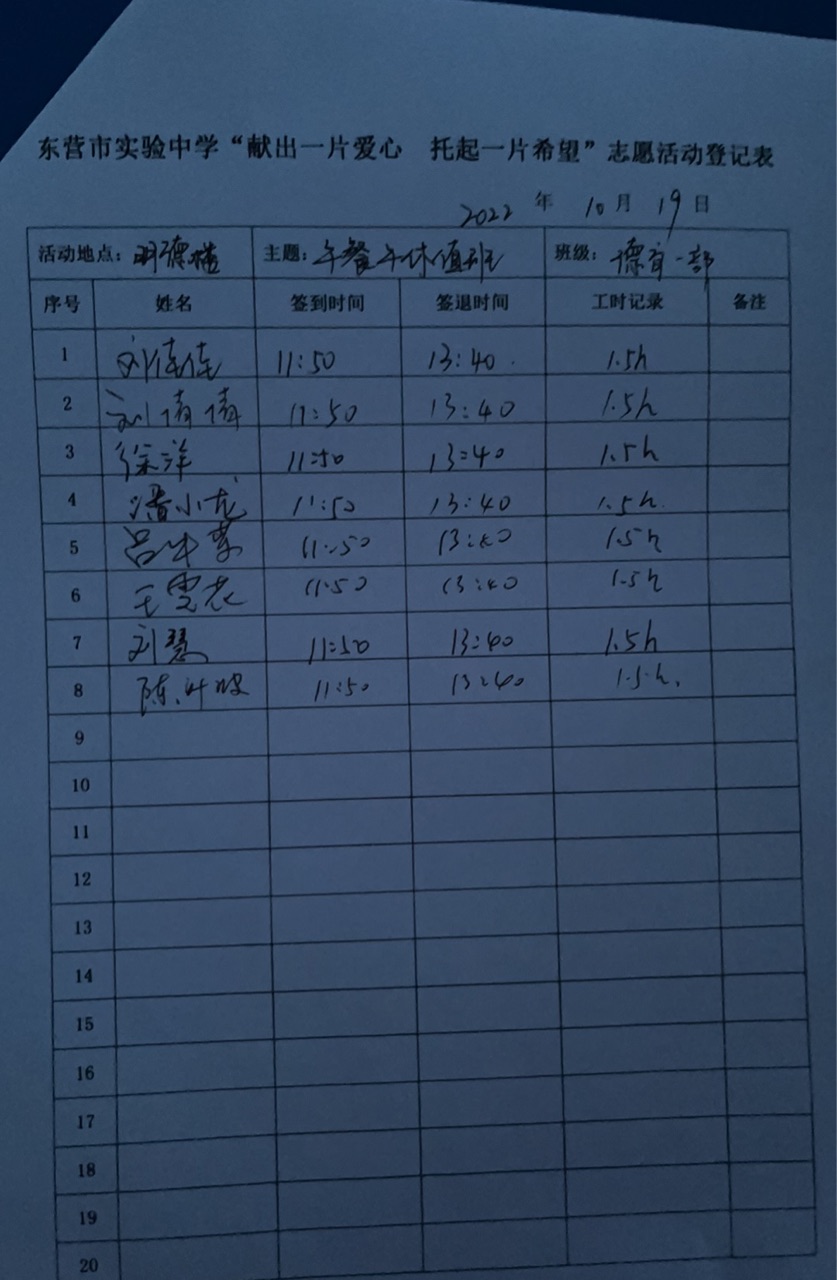 东营市实验中学“献出一片爱心 托起一片希望”志愿活动登记表
2022 年 10 月 19 日
活动地点：明德楼 主题：午餐午休值班 班级：德育一部
序号 姓名 签到时间 签退时间 工时记录 备注
1 刘倩倩 11:50 13:40 1.5h
2 刘倩倩 11:50 13:40 1.5h
3 徐洋 11:50 13:40 1.5h
4 潘小龙 11:50 13:40 1.5h
5 11:50 13:40 1.5h
6 11:50 13:40 1.5h
7 刘慧 11:50 13:40 1.5h
8 11:50 13:40 1.5h.
9
10
11
12
13
14
15
16
17
18
19
20